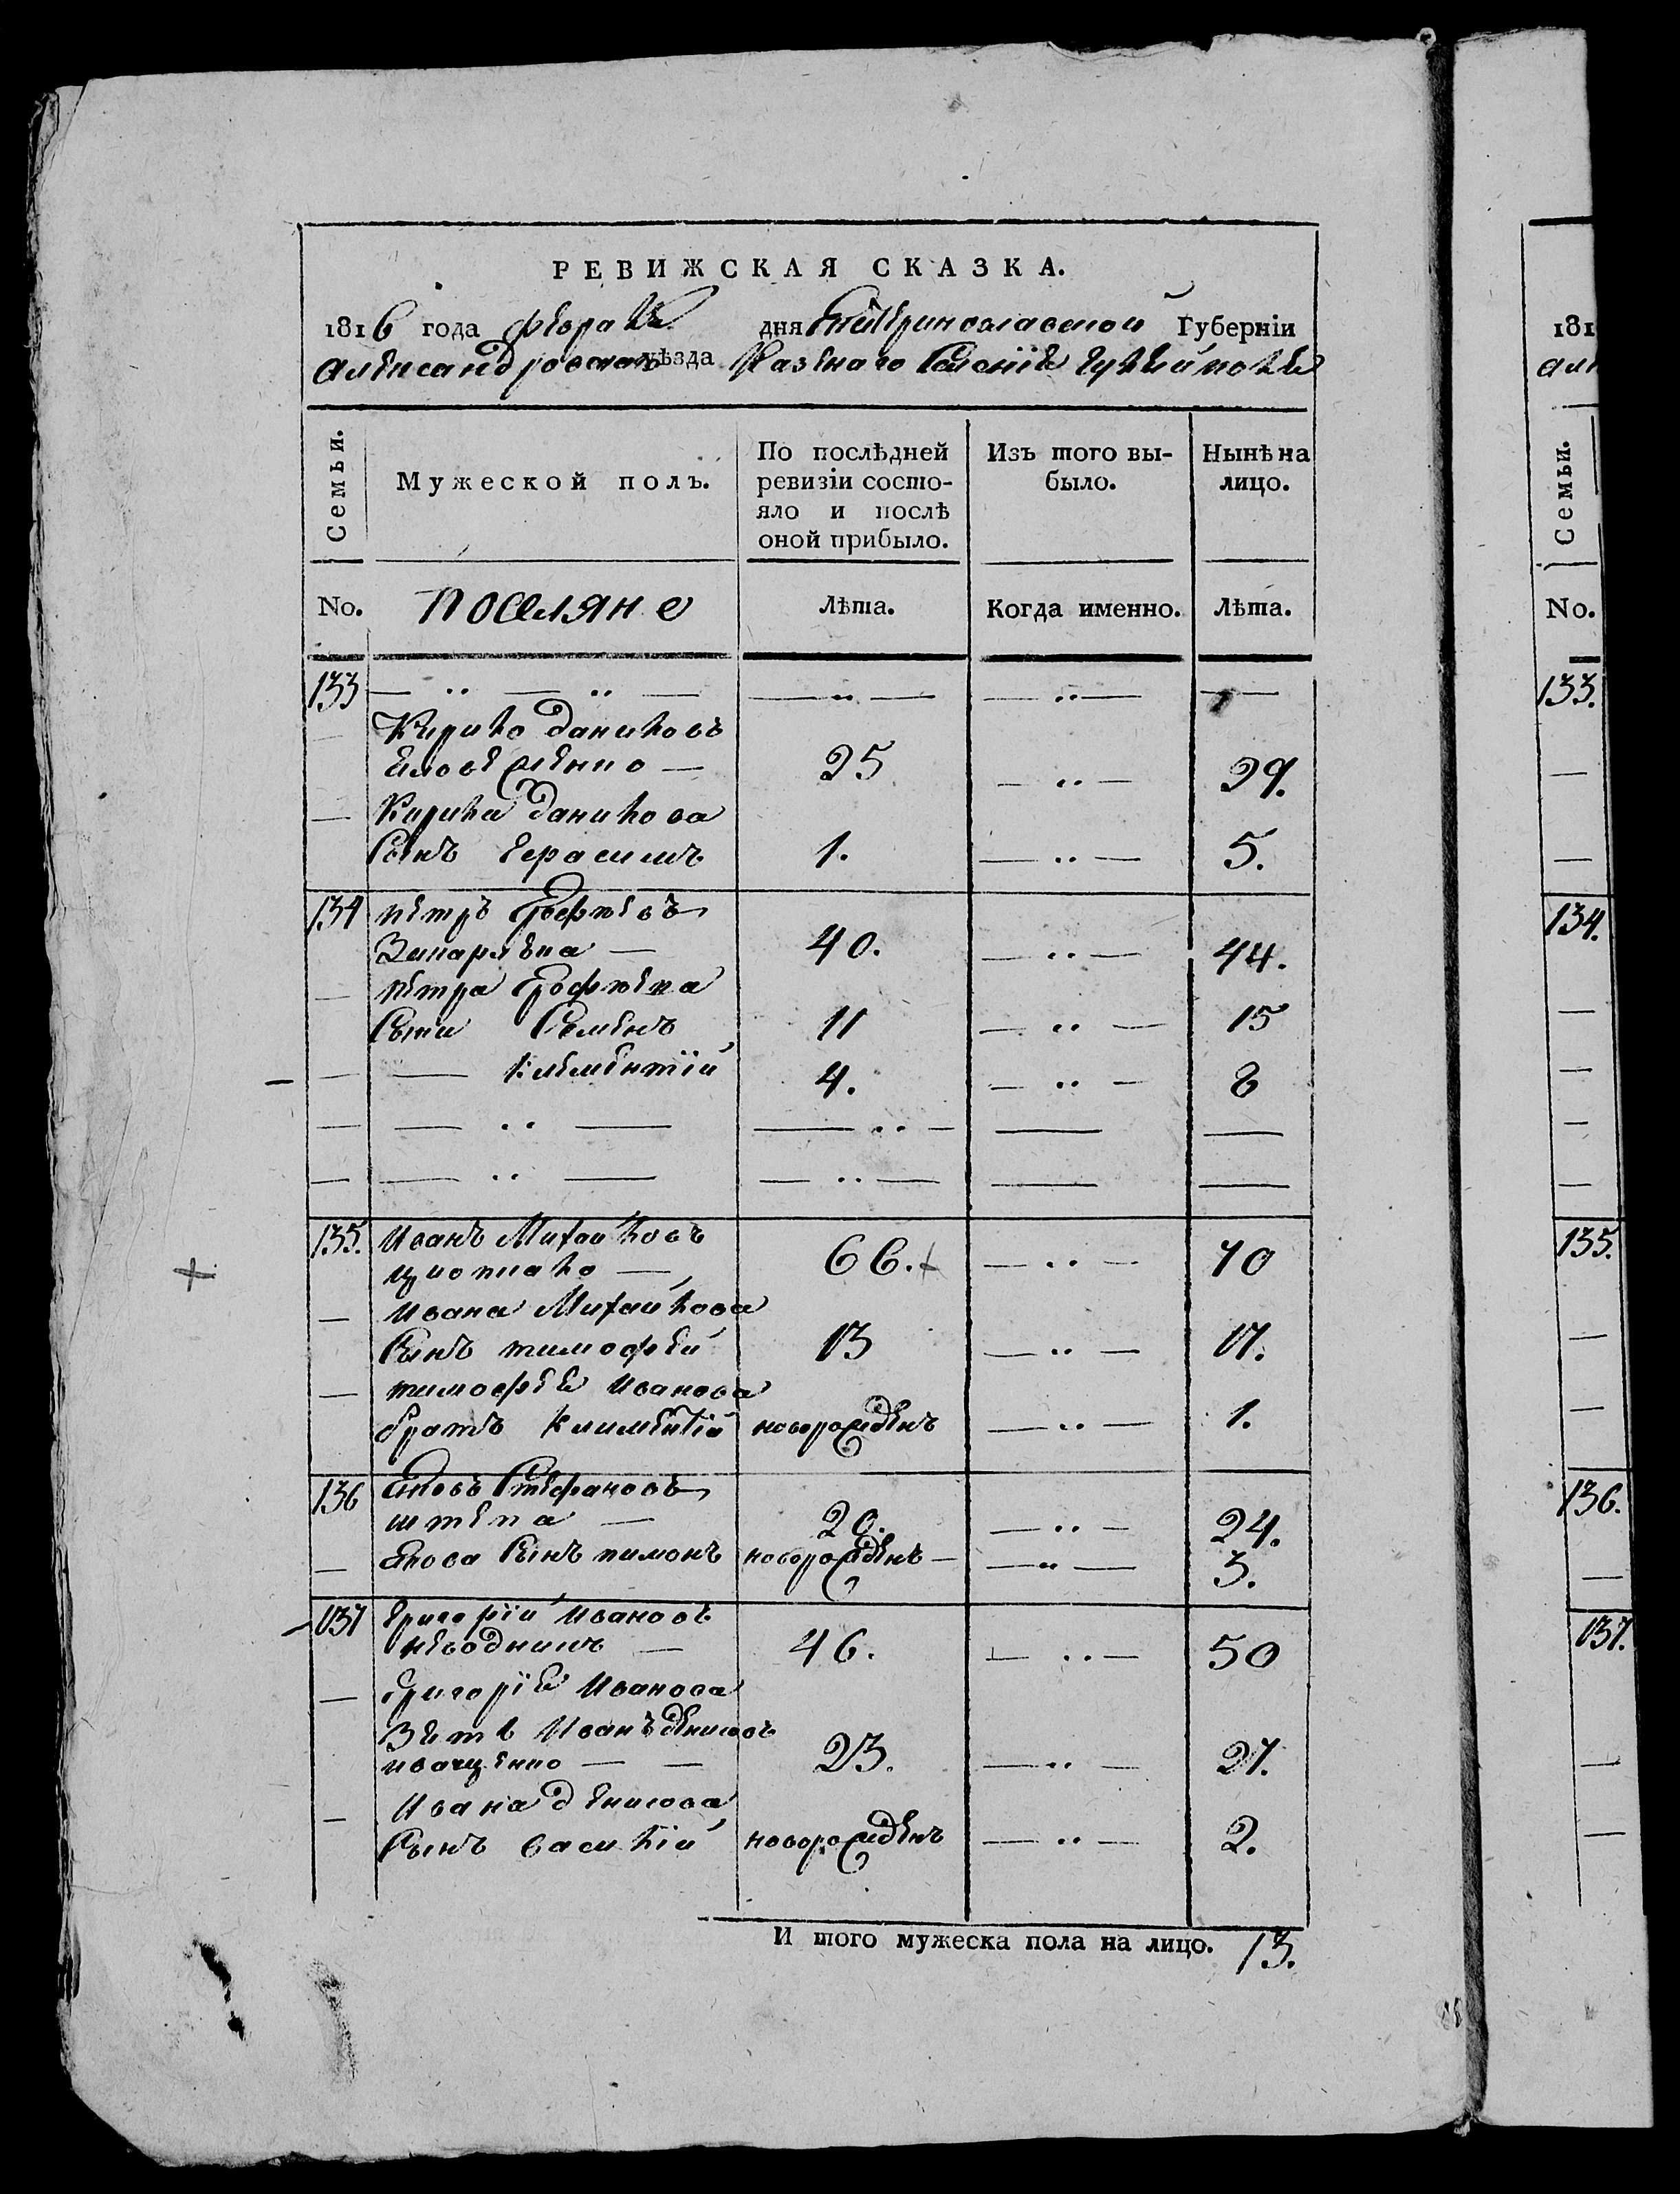 РЕВИЖСКАЯ СКАЗКА.
1816 года февраля дня Екатеринославской Губернїи
александровскаго уѣзда Казенаго Селенїя гуляйполя
Семьи.
Мужеской полъ.
По послѣдней ревизїи состояло и послѣ оной прибыло.
Изъ того выбыло.
Нынѣ на лицо.
No. поселяне Лѣта. Когда именно. Лѣта.
133 — .. — .. — — .. — — .. — —
Кирило даниловъ
— 25 — .. — 29.
— Кирила данилова
сынъ герасимъ 1. — .. — 5.
134 петръ Ерофѣевъ
— 40. — .. — 44.
— петра Ерофѣева
сыни Семенъ 11 — .. — 15
— — климентїй 4. — .. — 8
— — .. — — .. — — —
— — .. — — .. — — —
135. иванъ Михайловъ
— 66. — .. — 70
— ивана Михайлова
сынъ тимофей 13 — .. — 17.
— тимофея иванова
братъ климентїй новорожденъ — .. — 1.
136 Стефановъ
штепа — 20. — .. — 24.
— сынъ пимонъ новорожденъ — — .. — 3.
137 григорїй ивановъ
— 46. — .. — 50
— григорїя иванова
зять Иванъ денисовъ
иващенко — — 23. — .. — 27.
— Ивана денисова
сынъ василїй новорожденъ — .. — 2.
И того мужеска пола на лицо. 13.
181
али
Семьи.
No.
133.
134.
135.
136.
137.